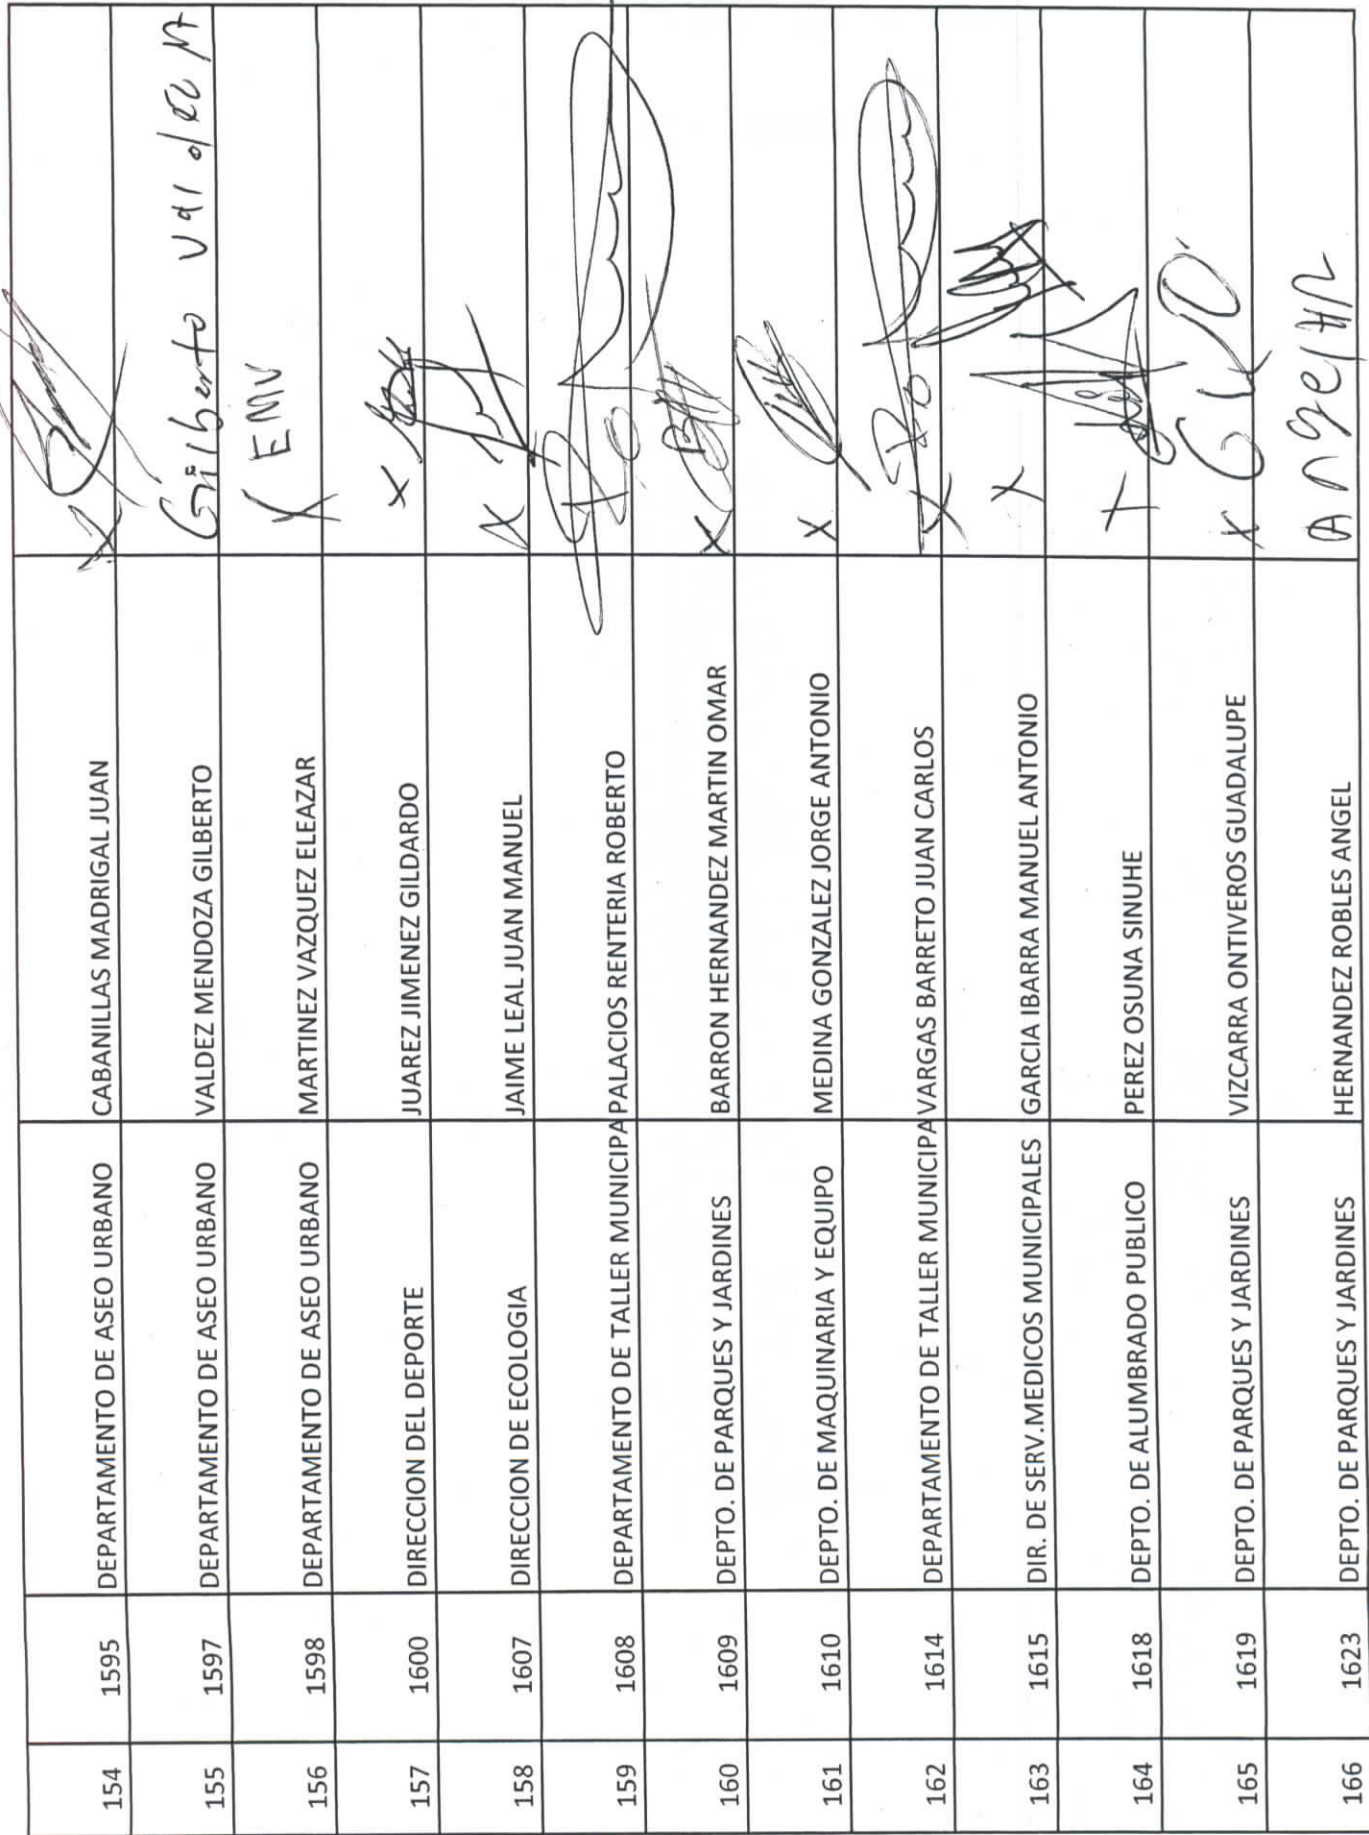 154 1595 DEPARTAMENTO DE ASEO URBANO CABANILLAS MADRIGAL JUAN X
155 1597 DEPARTAMENTO DE ASEO URBANO VALDEZ MENDOZA GILBERTO Gilberto Valdez M
156 1598 DEPARTAMENTO DE ASEO URBANO MARTINEZ VAZQUEZ ELEAZAR X EMV
157 1600 DIRECCION DEL DEPORTE JUAREZ JIMENEZ GILDARDO X
158 1607 DIRECCION DE ECOLOGIA JAIME LEAL JUAN MANUEL X
159 1608 DEPARTAMENTO DE TALLER MUNICIPA PALACIOS RENTERIA ROBERTO
160 1609 DEPTO. DE PARQUES Y JARDINES BARRON HERNANDEZ MARTIN OMAR X
161 1610 DEPTO. DE MAQUINARIA Y EQUIPO MEDINA GONZALEZ JORGE ANTONIO X
162 1614 DEPARTAMENTO DE TALLER MUNICIPA VARGAS BARRETO JUAN CARLOS X
163 1615 DIR. DE SERV.MEDICOS MUNICIPALES GARCIA IBARRA MANUEL ANTONIO X
164 1618 DEPTO. DE ALUMBRADO PUBLICO PEREZ OSUNA SINUHE X
165 1619 DEPTO. DE PARQUES Y JARDINES VIZCARRA ONTIVEROS GUADALUPE X
166 1623 DEPTO. DE PARQUES Y JARDINES HERNANDEZ ROBLES ANGEL Angel HR